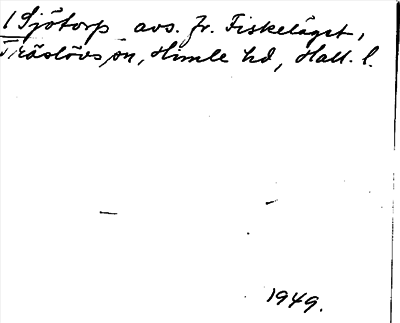 1 Sjötorp avs. fr. Fiskeläget,
Träslövs sn, Himle hd, Hall. l.
1949.